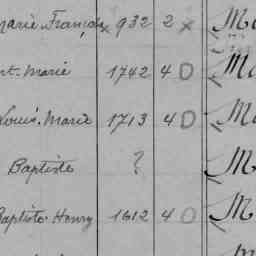 Marie François x 932 2 x M
nt. Marie 1742 4 D M
Louis. Marie 1713 4 D M
Baptiste ? M
Baptiste Henry 1612 4 O M